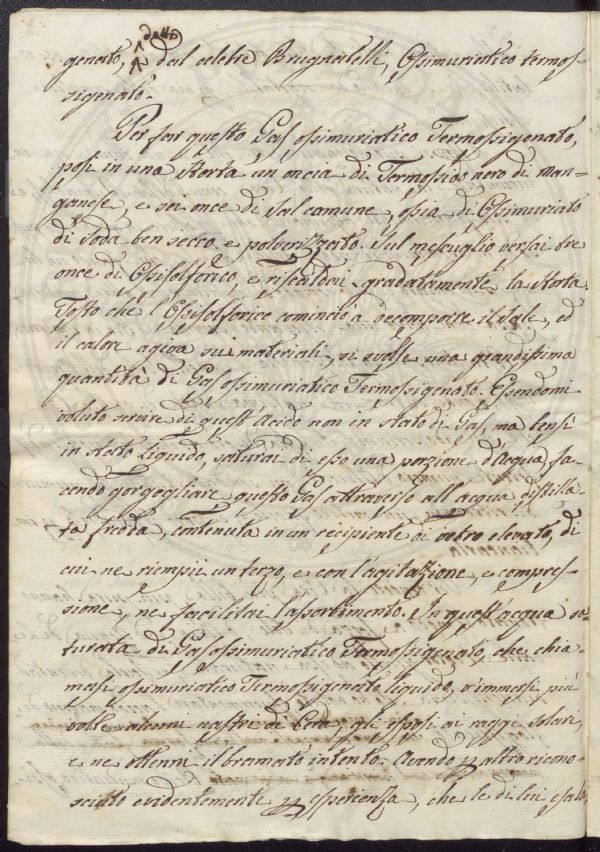 detto
genato, dal celebre Brugnatelli, Ossimuriatico termos-
sigenato.
Per far questo Gas ossimuriatico Termossigenato,
posi in una Storta un oncia di Termossido nero di man-
ganese, e sei once di Sal comune, ossia di Ossimuriato
di Soda ben secco e polverizzato. Sul mescuglio versai tre
once di Ossisolforico, e riscaldai gradatamente la Storta.
Tosto che l'Ossisolforico cominciò a decomporre il Sale, ed
il calore agiva su materiali, si svolse una grandissima
quantità di Gas ossimuriatico Termossigenato. Essendomi
voluto servire di quest'Acido non in stato di Gas, ma bensì
in stato Liquido, saturai di esso una porzione d'Acqua, fa-
cendo gorgogliare questo Gas attraverso all'acqua distilla-
ta fredda, contenuta in un recipiente di vetro elevato, di
cui ne riempii un terzo, e con l'agitazione, e compres-
sione, ne facilitai l'assorbimento. In quest'acqua sa-
turata di Gas ossimuriatico Termossigenato, che chia-
masi ossimuriatico Termossigenato liquido, v'immersi più
volte alcuni nastri di Cera, gli esposi ai raggi solari,
e ne ottenni il bramato intento. Avendo altro ricono-
sciuto evidentemente esperienza, che le di lui esala